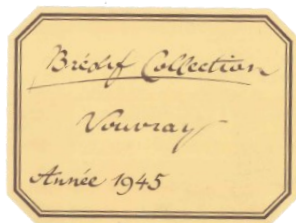 Brédif Collection
Vouvray
Année 1945